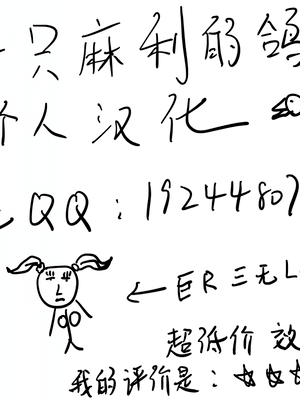 只麻利的鸽
个人汉化
QQ：19244807
← 巨R三无L
超低价 效
我的评价是：☆☆☆